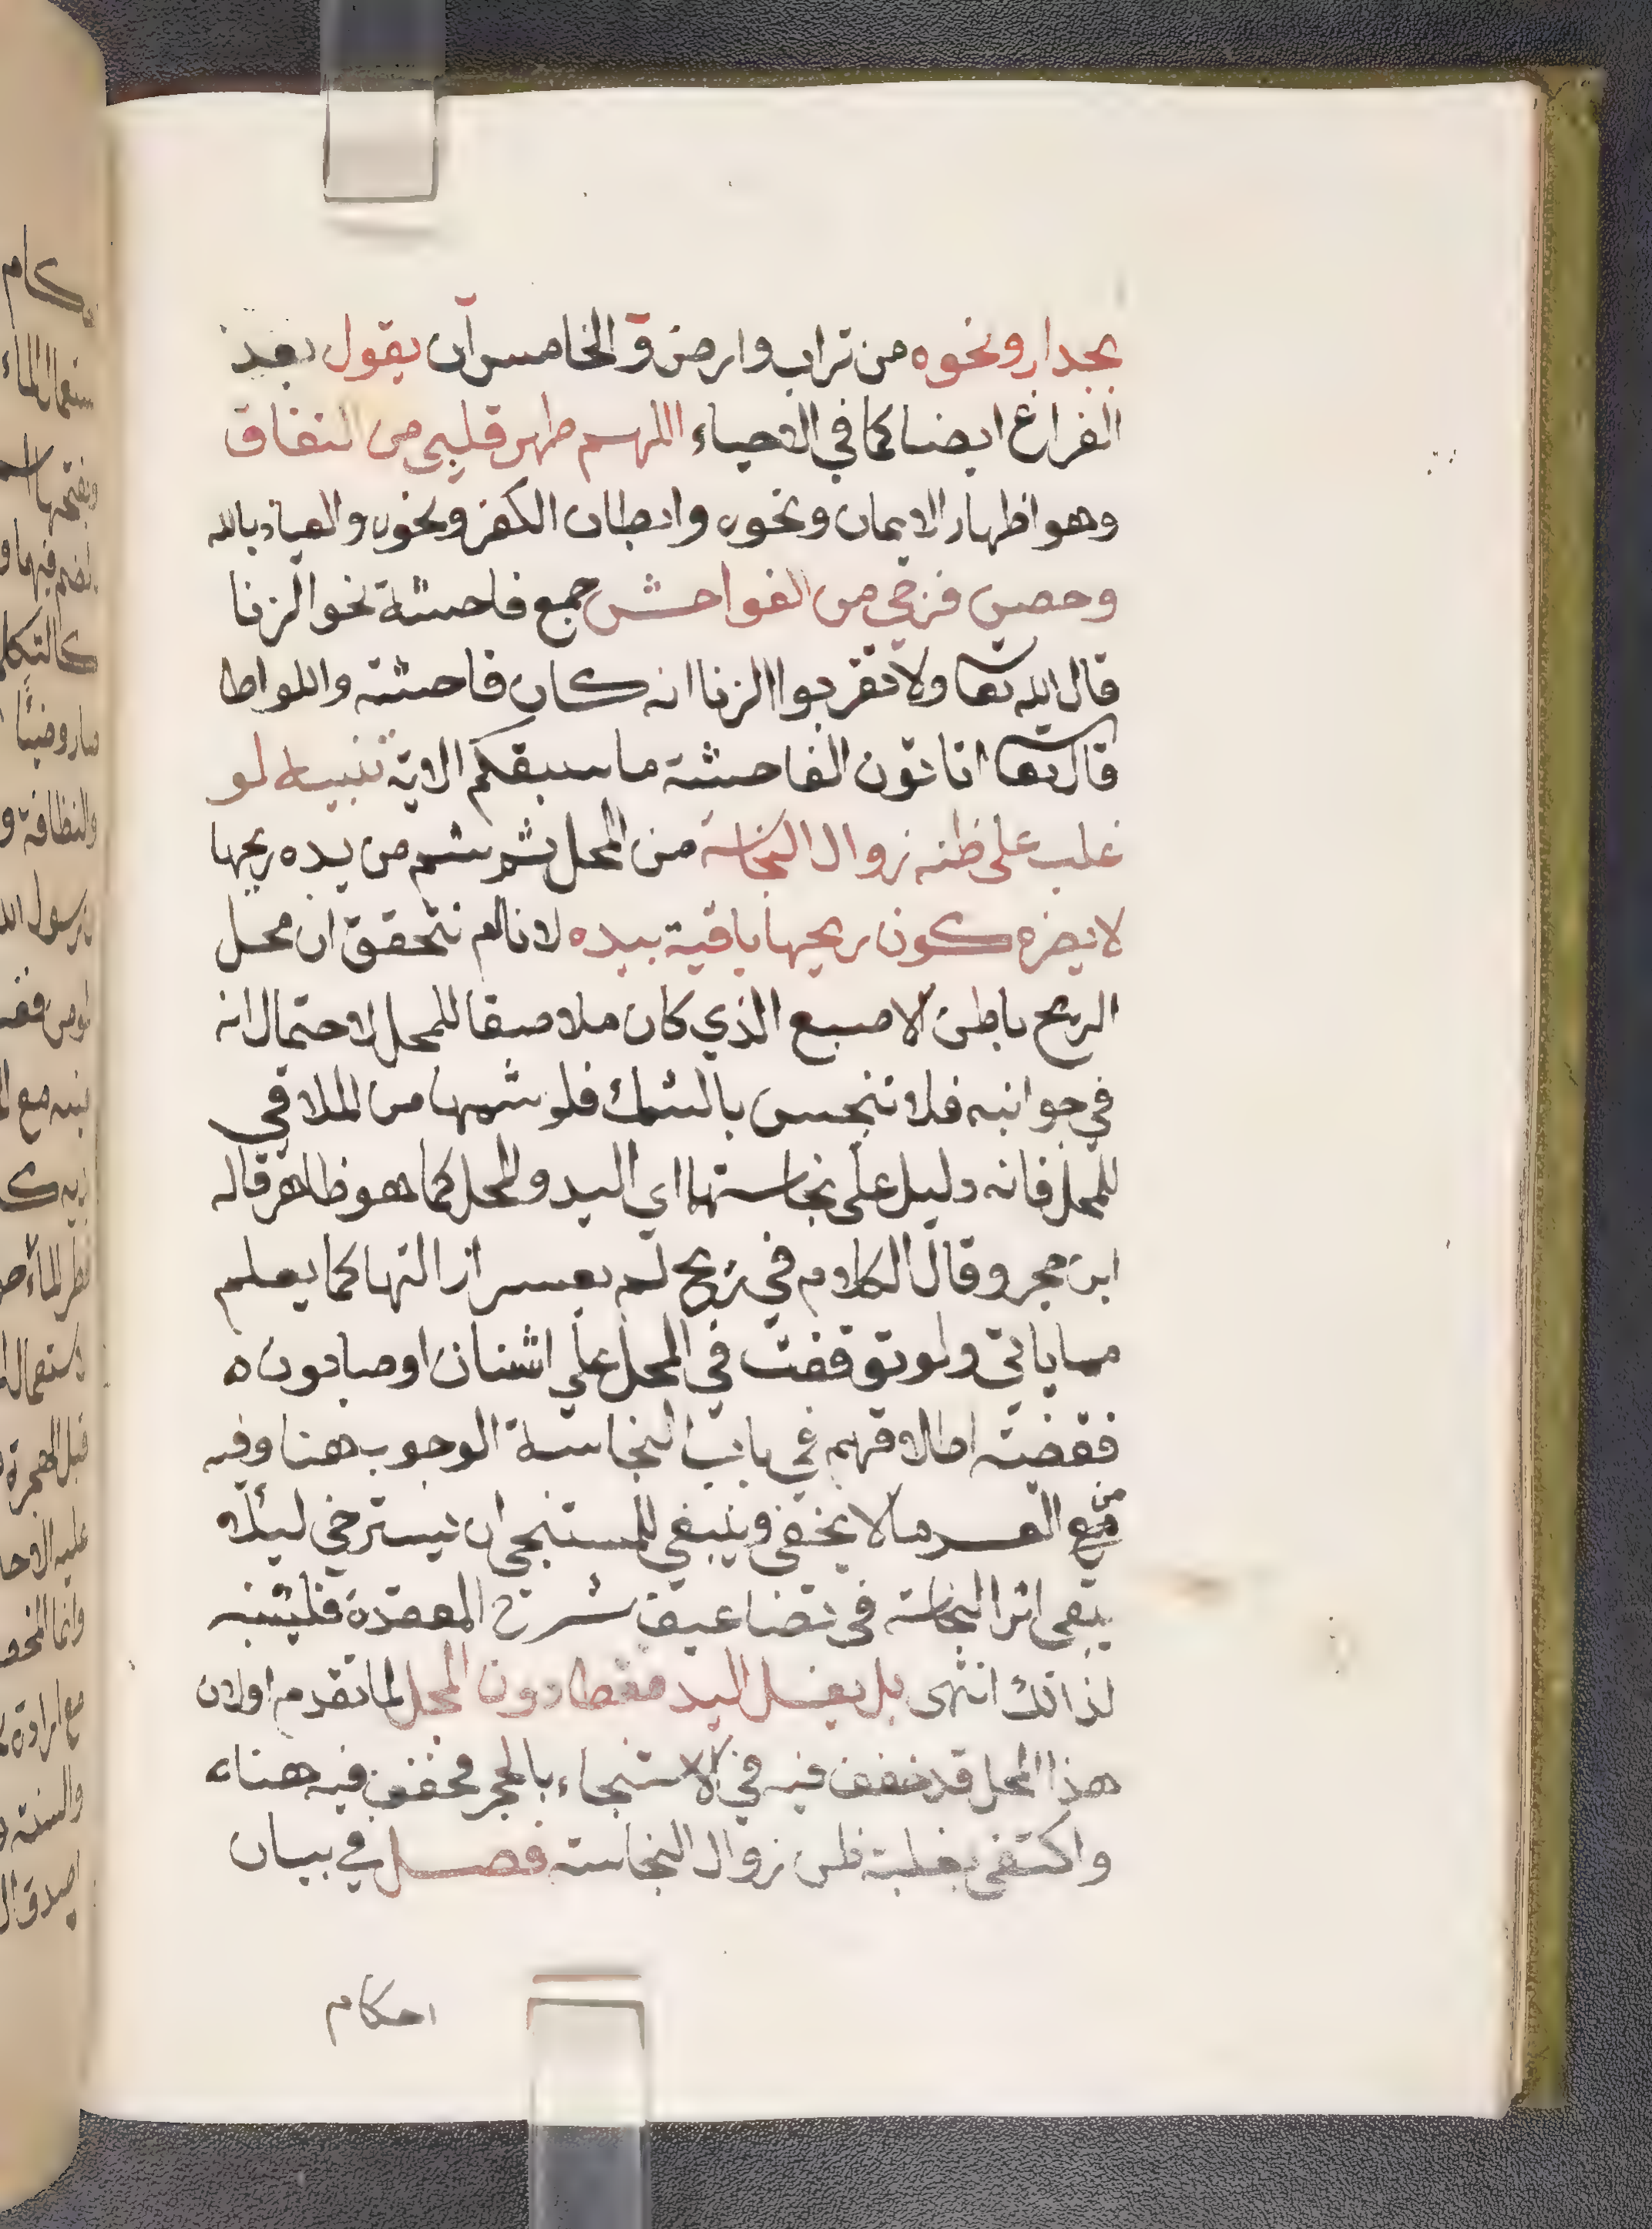 بجدار ونحوه من تراب وارض و الخامس ان يقول بعد
الفراغ ايضا كما في الاحياء اللهم طهر قلبي من النفاق
وهو اظهار الايمان ونحوه وابطان الكفر ونحوه والعياذ بالله
وحصن فرجي من الفواحش جمع فاحشة نحو الزنا
قال الله تعا ولا تقربوا الزنا انه كان فاحشة واللواط
قال تعا اتاتون الفاحشة ما سبقكم الاية تنبيه لو
غلب على ظنه زوال النجاسة من المحل ثم شم من يده ريحها
لا يضره كون ريحها باقية بيده لانا لم نتحقق ان محل
الريح باطن الاصبع الذي كان ملاصقا للمحل لاحتمال انه
في جوانبه فلا تنجس بالشك فلو شمها من الملاقي
للمحل فانه دليل على نجاستها اي اليد والمحل كما هو ظاهر قاله
ابن حجر وقال الكلام في ريح لم يعسر ازالتها كما يعلم
مما ياتي ولو توقفت في المحل على اشنان او صابون ه
فقضية اطلاقهم في باب النجاسة الوجوب هنا وفيه
من العسر ما لا يخفى وينبغي للمستنجي ان يسترخي ليلا
يبقى اثر النجاسة في تضاعيف شرج المقعدة فليتنبه
لذالك انتهى بل يغسل اليد فقط دون المحل لما تقدم اولان
هذا المحل قد خفف فيه في الاستنجاء بالحجر فخفف فيه هنا
واكتفى بغلبة ظن زوال النجاسة فصل في بيان
احكام